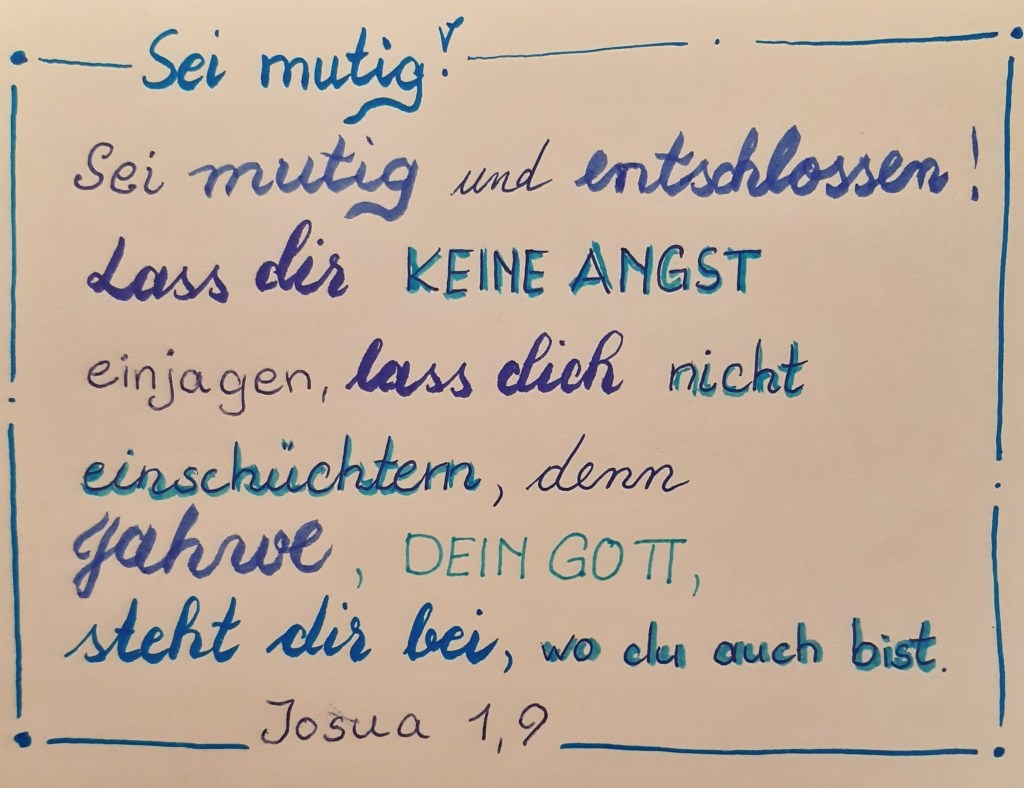 Sei mutig!
Sei mutig und entschlossen!
Lass dir KEINE ANGST
einjagen, lass dich nicht
einschüchtern, denn
Jahwe, DEIN GOTT,
steht dir bei, wo du auch bist.
Josua 1,9